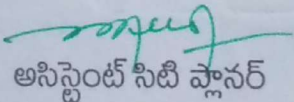 అసిస్టెంట్ సిటి ప్లానర్